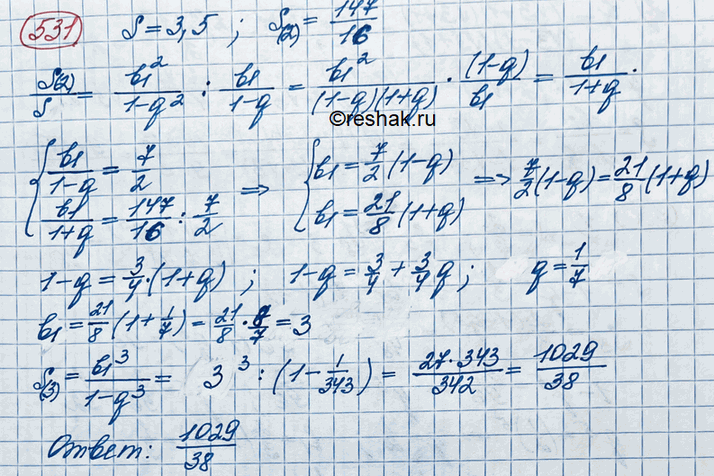 531 S = 3,5 ; S(2) = 147/16
S(2)/S = b1²/(1-q²) : b1/(1-q) = b1²/((1-q)(1+q)) · (1-q)/b1 = b1/(1+q) .
©reshak.ru
{ b1/(1-q) = 7/2 ⇒ { b1 = 7/2 (1-q) ⇒ 7/2 (1-q) = 21/8 (1+q)
b1/(1+q) = 147/16 : 7/2 b1 = 21/8 (1+q)
1-q = 3/4 · (1+q) ; 1-q = 3/4 + 3/4 q ; q = 1/7
b1 = 21/8 (1 + 1/7) = 21/8 · 8/7 = 3
S(3) = b1³/(1-q³) = 3³ : (1 - 1/343) = 27·343/342 = 1029/38
Ответ: 1029/38